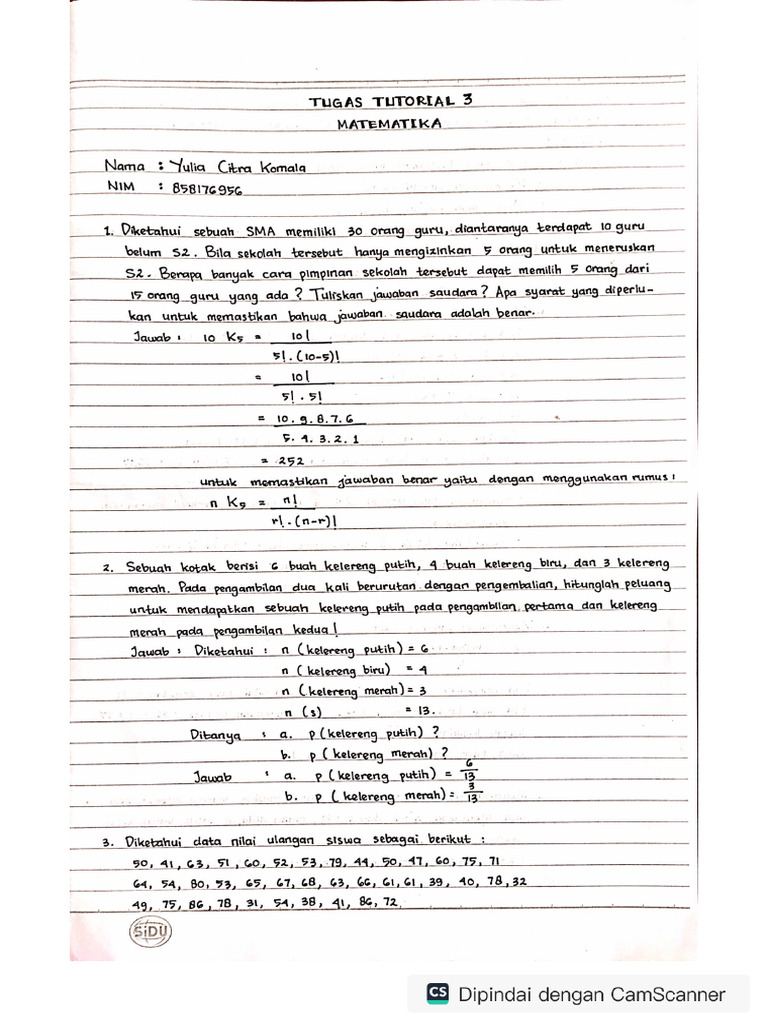 TUGAS TUTORIAL 3
MATEMATIKA
Nama : Yulia Citra Komala
NIM : 858176956
1. Diketahui sebuah SMA memiliki 30 orang guru, diantaranya terdapat 10 guru
belum S2. Bila sekolah tersebut hanya mengizinkan 5 orang untuk meneruskan
S2. Berapa banyak cara pimpinan sekolah tersebut dapat memilih 5 orang dari
15 orang guru yang ada ? Tuliskan jawaban saudara ? Apa syarat yang diperlu-
kan untuk memastikan bahwa jawaban saudara adalah benar.
Jawab : 10 K5 = 10!
5! . (10-5)!
= 10!
5! . 5!
= 10 . 9 . 8 . 7 . 6
5 . 4 . 3 . 2 . 1
= 252
untuk memastikan jawaban benar yaitu dengan menggunakan rumus :
n K5 = n!
r! . (n-r)!
2. Sebuah kotak berisi 6 buah kelereng putih, 4 buah kelereng biru, dan 3 kelereng
merah. Pada pengambilan dua kali berurutan dengan pengembalian, hitunglah peluang
untuk mendapatkan sebuah kelereng putih pada pengambilan pertama dan kelereng
merah pada pengambilan kedua!
Jawab : Diketahui : n (kelereng putih) = 6
n (kelereng biru) = 4
n (kelereng merah) = 3
n (s) = 13.
Ditanya : a. p (kelereng putih) ?
b. p (kelereng merah) ?
Jawab : a. p (kelereng putih) = 6/13
b. p (kelereng merah) = 3/13
3. Diketahui data nilai ulangan siswa sebagai berikut :
50, 41, 63, 51, 60, 52, 53, 79, 44, 50, 47, 60, 75, 71
64, 54, 80, 53, 65, 67, 68, 63, 66, 61, 61, 39, 40, 78, 32
49, 75, 86, 78, 31, 54, 38, 41, 86, 72.
SiDU
CS Dipindai dengan CamScanner